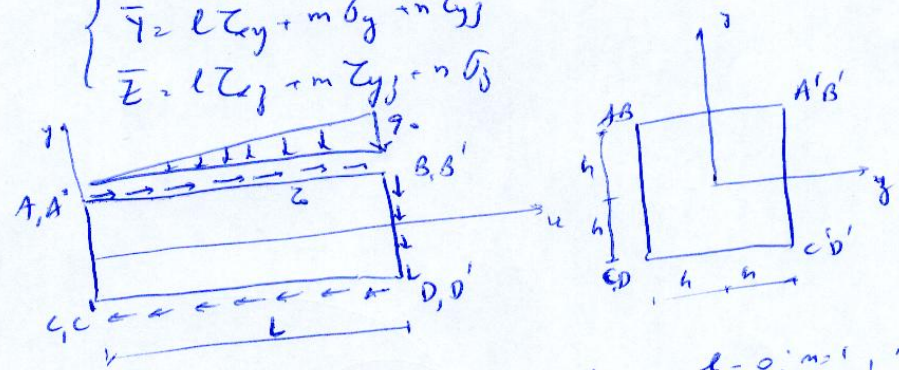 Ȳ = l τxy + m σy + n τyz
Z̄ = l τxz + m τyz + n σz
y
q₀
A, A'
τ
B, B'
x
C, C'
D, D'
L
AB
A'B'
h
h
y
CD
C'D'
h
h
l = 0; n = 1,